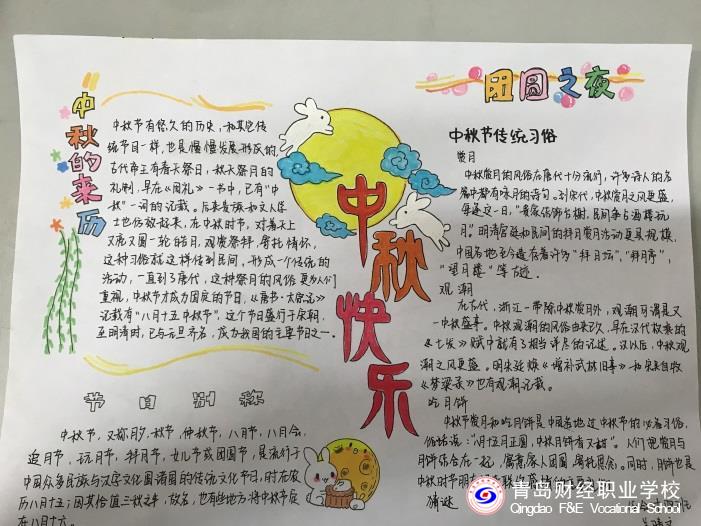 中秋的来历
中秋节有悠久的历史,和其他传
统节日一样,也是慢慢发展形成的,
古代帝王有春天祭日,秋天祭月的
礼制,早在《周礼》一书中,已有"中
秋"一词的记载。后来贵族和文人学
士也仿效起来,在中秋时节,对着天上
又亮又圆一轮皓月,观赏祭拜,寄托情怀,
这种习俗就这样传到民间,形成一个传统的
活动,一直到了唐代,这种祭月的风俗更为人们
重视,中秋节才成为固定的节日,《唐书·太宗记》
记载有"八月十五中秋节",这个节日盛行于宋朝,
至明清时,已与元旦齐名,成为我国的主要节日之一。
节日别称
中秋节,又称月夕、秋节,仲秋节,八月节,八月会,
追月节,玩月节,拜月节,女儿节或团圆节,是流行于
中国众多民族与汉字文化圈诸国的传统文化节日,时在农
历八月十五;因其恰值三秋之半,故名,也有些地方将中秋节定
在八月十六。
中秋快乐
团圆之夜
中秋节传统习俗
赏月
中秋赏月的风俗在唐代十分流行,许多诗人的名
篇中都有咏月的诗句。到宋代,中秋赏月之风更盛,
每逢这一日,"贵家结饰台榭,民间争占酒楼玩
月"。明清宫廷和民间的拜月赏月活动更具规模,
中国各地至今遗存着许多"拜月坛","拜月亭",
"望月楼"等古迹。
观潮
在古代,浙江一带除中秋赏月外,观潮可谓是又
一中秋盛事。中秋观潮的风俗由来已久,早在汉代枚乘的
《七发》赋中就有了相当详尽的记述。汉以后,中秋观
潮之风更盛。明朱廷焕《增补武林旧事》和宋吴自牧
《梦粱录》也有观潮记载。
吃月饼
中秋节赏月和吃月饼是中国各地过中秋节的必备习俗,
俗话说:"八月十五月正圆,中秋月饼香又甜"。人们把赏月与
月饼结合在一起,寓意家人团圆,寄托思念。同时,月饼也是
中秋时节朋友
猜谜
青岛财经职业学校
Qingdao F&E Vocational School